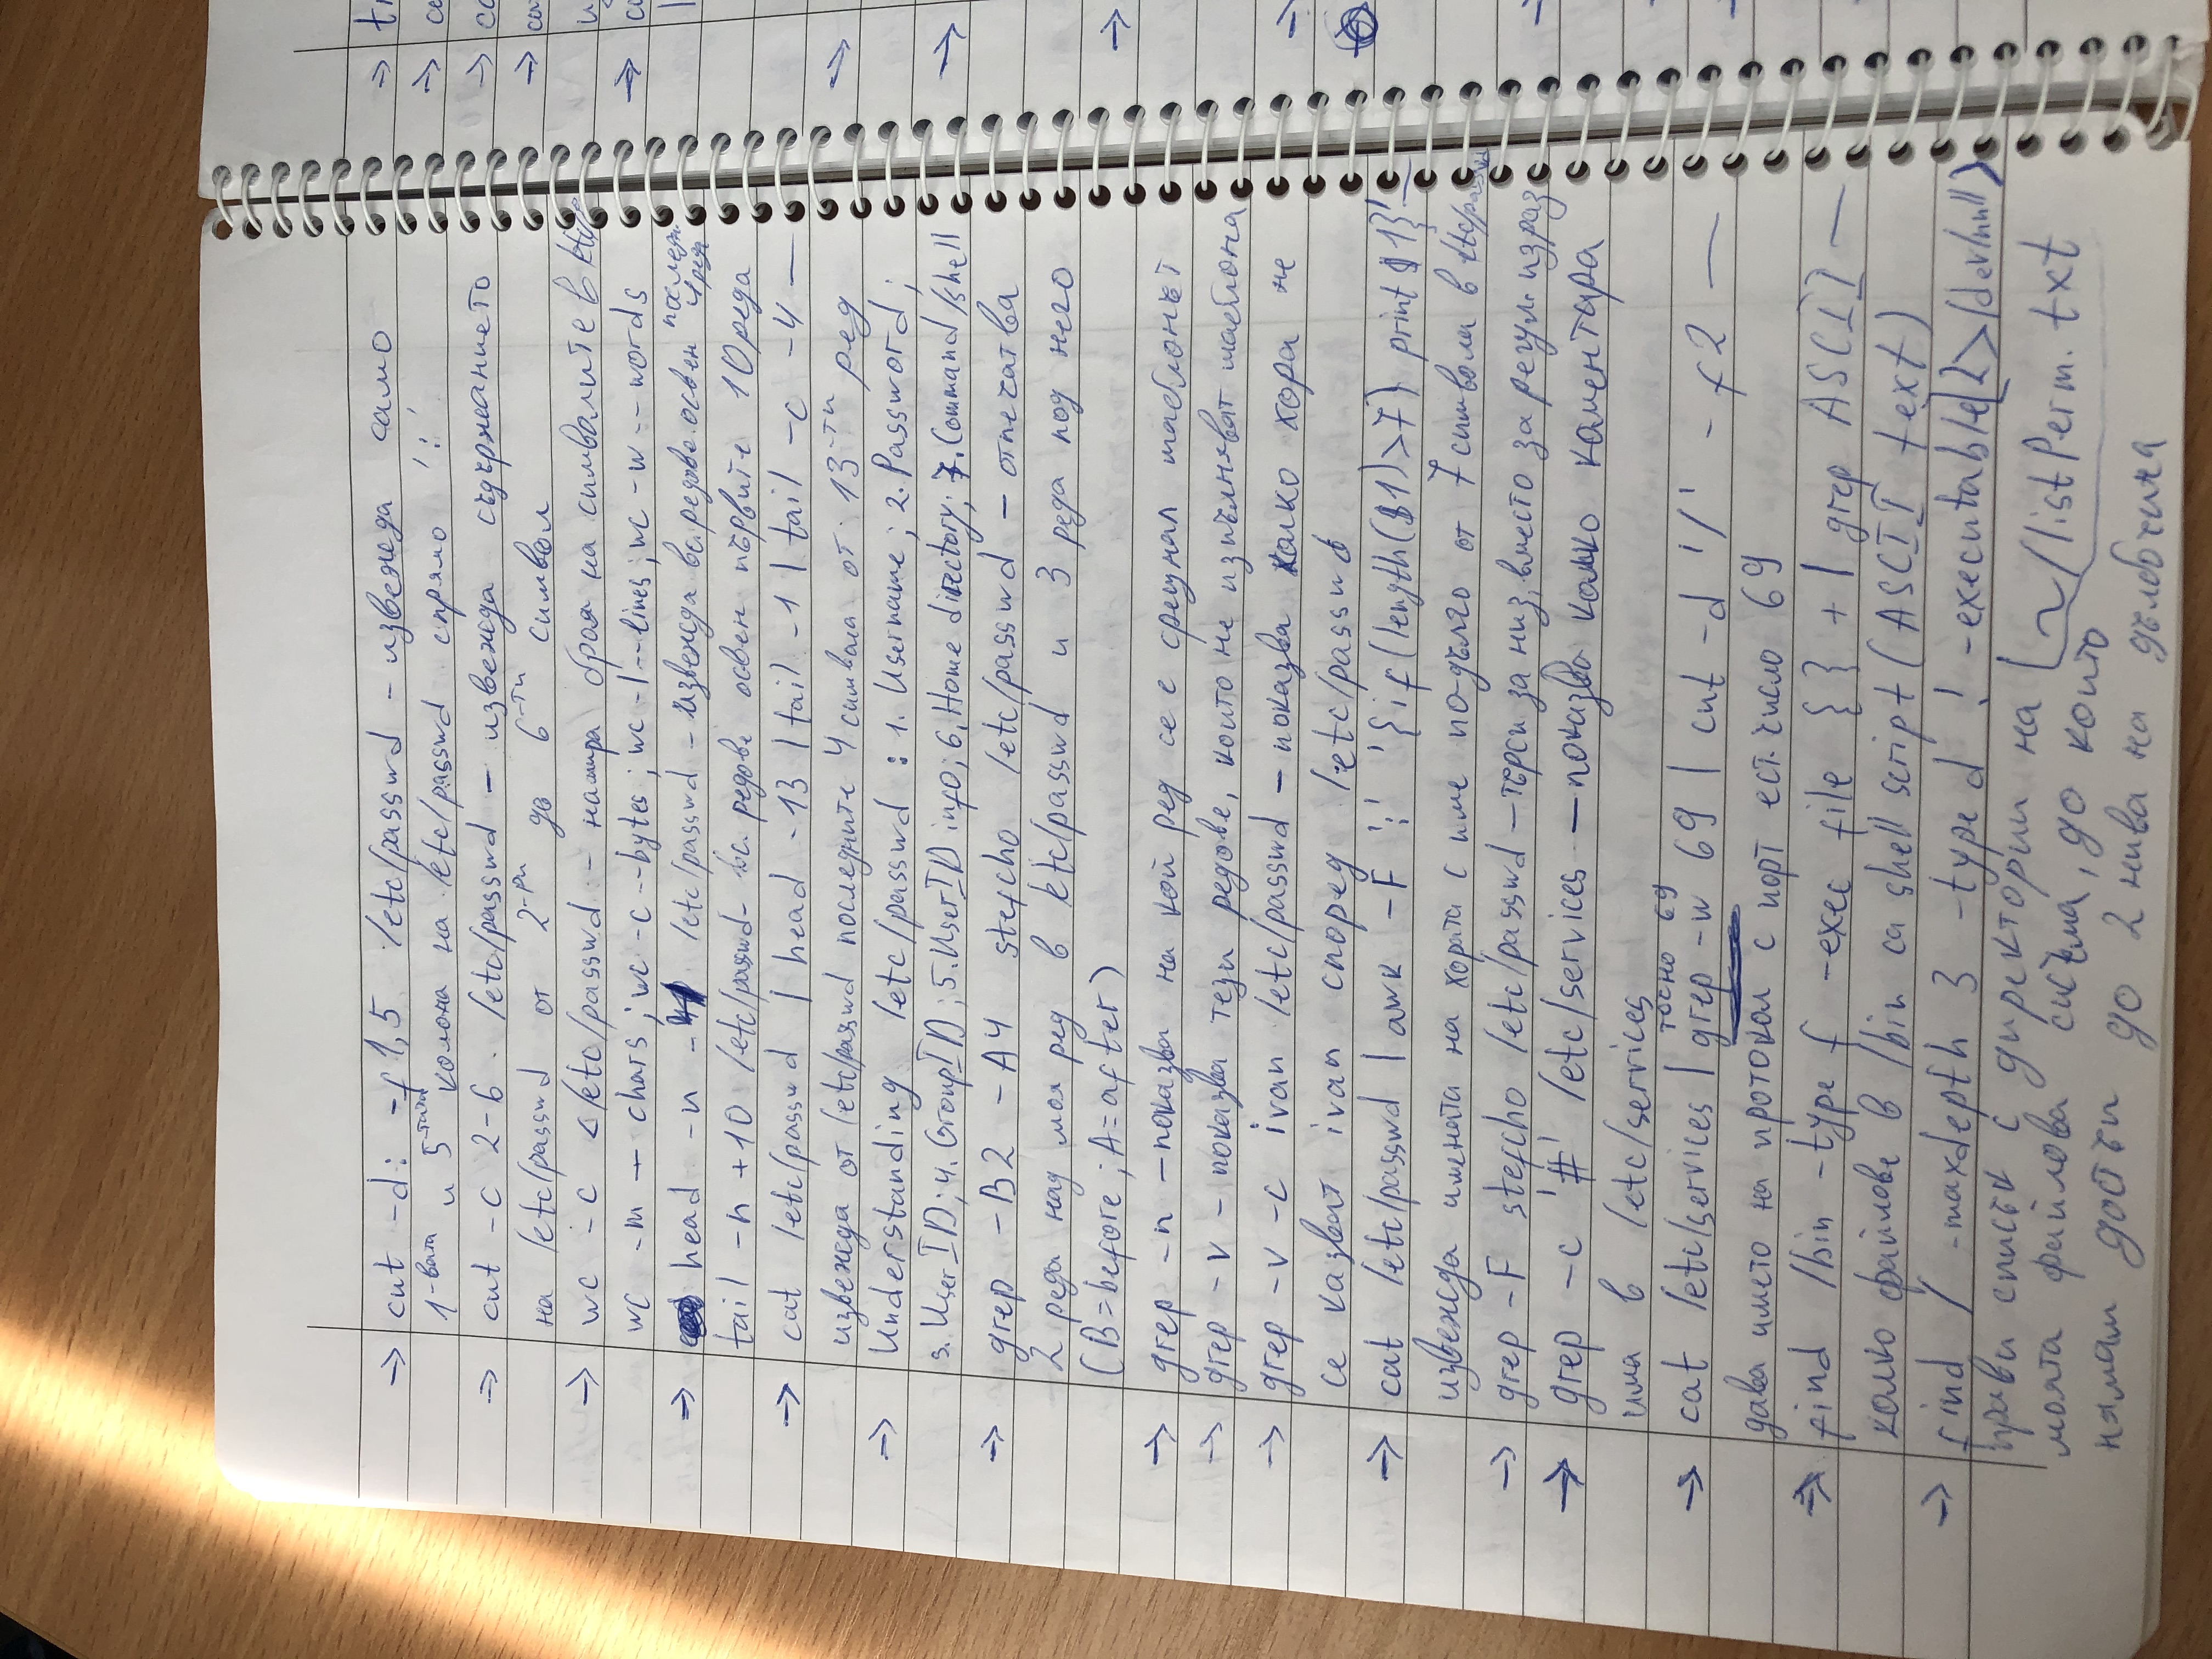 → cut -d: -f1,5 /etc/passwd - извежда само
1-вата и 5-тата колона на /etc/passwd спрямо ':'
→ cut -c 2-6 /etc/passwd - извежда съдържанието
на /etc/passwd от 2-ри до 6-ти символ
→ wc -c </etc/passwd - намира броя на символите в
wc -m - chars; wc -c --bytes; wc -l --lines; wc -w -- words
→ head -n /etc/passwd - извежда вс. редове освен последн. 4 реда
tail -n +10 /etc/passwd - вс. редове освен първите 10 реда
→ cat /etc/passwd | head -13 | tail -1 | tail -c -4 —
извежда от /etc/passwd последните 4 символа от 13-ти ред
→ Understanding /etc/passwd : 1. Username; 2. Password;
3. User ID; 4. Group ID; 5. User ID info; 6. Home directory; 7. Command/shell
→ grep -B2 -A4 stefcho /etc/passwd - отпечатва
2 реда над моя ред в /etc/passwd и 3 реда под него
(B=before; A=after)
→ grep -n - показва на кой ред се е срещнал шаблонът
→ grep -v - показва тези редове, които не изпълняват шаблона
→ grep -v -c ivan /etc/passwd - показва колко хора не
се казват ivan според /etc/passwd
→ cat /etc/passwd | awk -F ':' '{if(length($1)>7) print $1}' —
извежда имената на хората с име по-дълго от 7 символа в /etc/passwd
→ grep -F stefcho /etc/passwd - търси за низ, вместо за регул. израз
→ grep -c '#' /etc/services - показва колко коментара
има в /etc/services
точно 69
→ cat /etc/services | grep -w 69 | cut -d '/' -f2 —
дава името на протокол с порт ест. число 69
→ find /bin -type f -exec file {} + | grep ASCII —
колко файлове в /bin са shell script (ASCII text)
→ find / -maxdepth 3 -type d ! -executable 2>/dev/null >
прави списък с директории на ~/listPerm.txt
моята файлова система, до които
нямам достъп до 2 нива на дълбочина